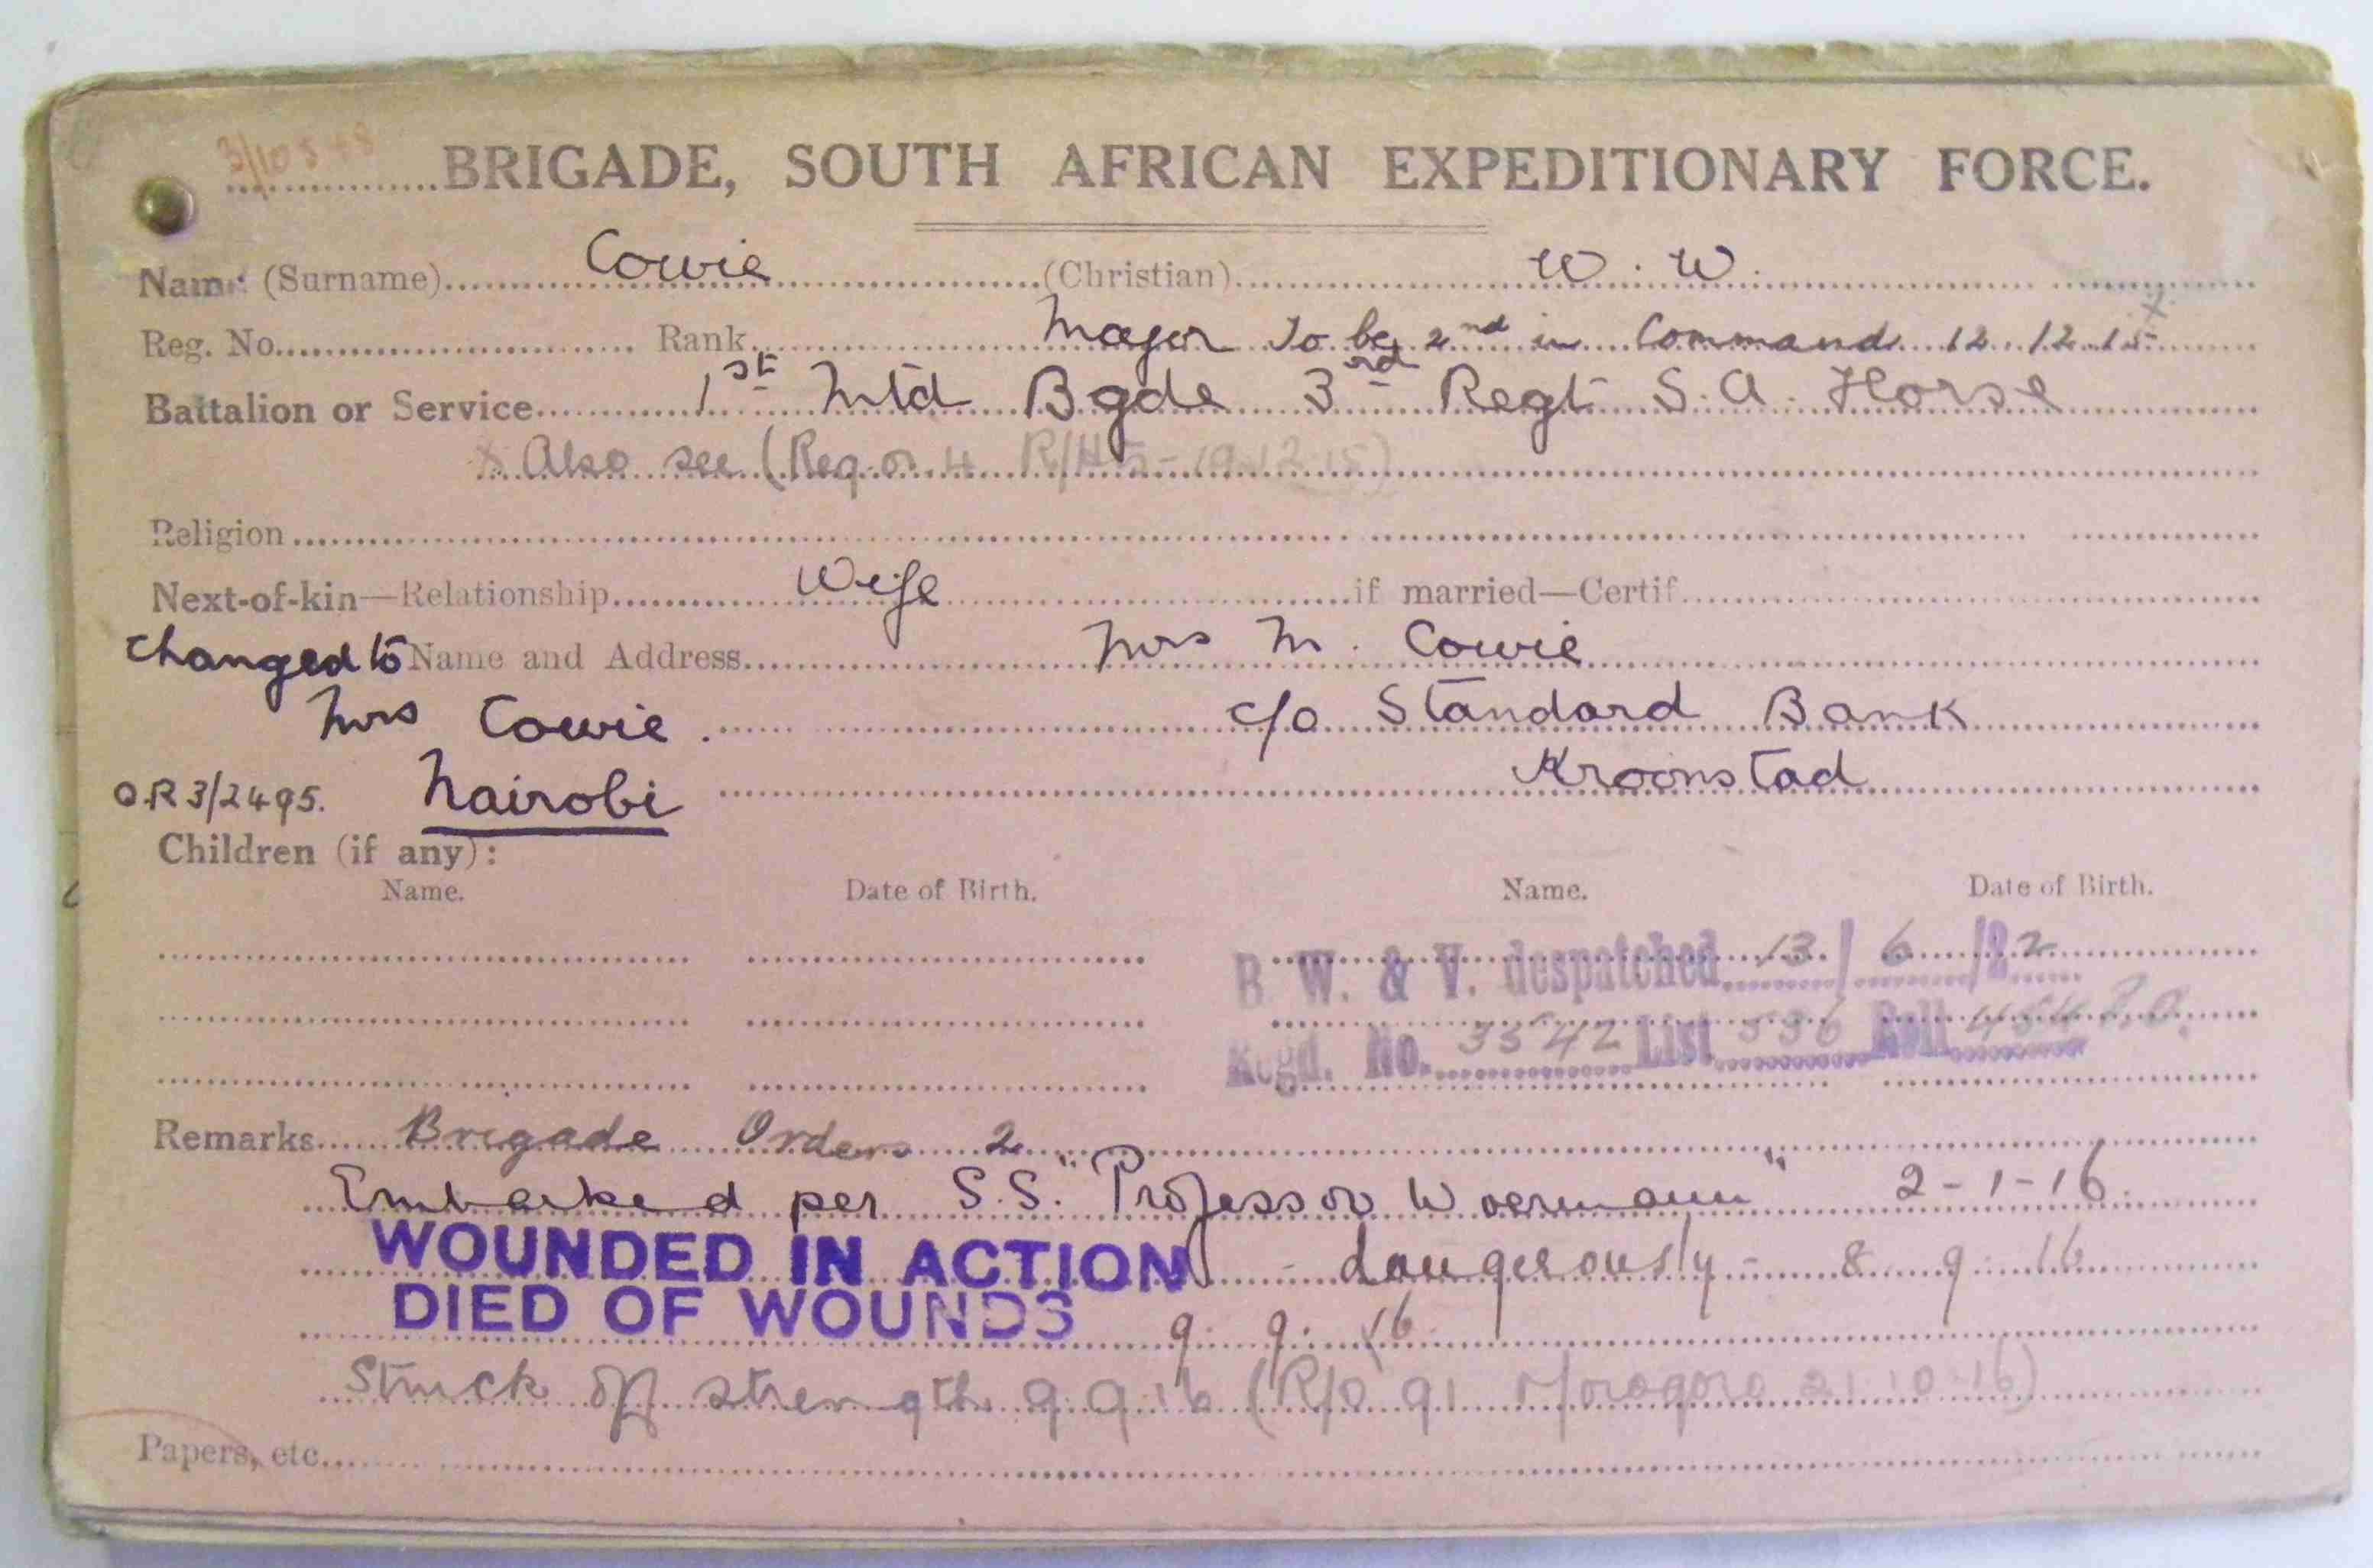 3/10548
BRIGADE, SOUTH AFRICAN EXPEDITIONARY FORCE.
Name (Surname) Cowie (Christian) W. W.
Reg. No. Rank Major To be 2nd in Command 12.12.15 x
Battalion or Service 1st Mtd Bgde 3rd Regt S.A. Horse
x Also see (Reg. or. 4 R/H 5 - 19.12.15)
Religion
Next-of-kin—Relationship Wife if married—Certif.
changed to Name and Address Mrs M. Cowie
Mrs Cowie. c/o Standard Bank
O.R 3/2495. Nairobi Kroonstad
Children (if any):
Name. Date of Birth. Name. Date of Birth.
B W. & V. despatched 13/6/22
Regd. No. 3542 List 536 Roll
Remarks Brigade Orders 2
Embarked per S.S. "Professor Woermann" 2-1-16.
WOUNDED IN ACTION - dangerously - 8 9 16
DIED OF WOUNDS 9. 9. 16.
Struck off strength 9.9.16 (R/O 91 Morogoro 21.10.16)
Papers, etc.